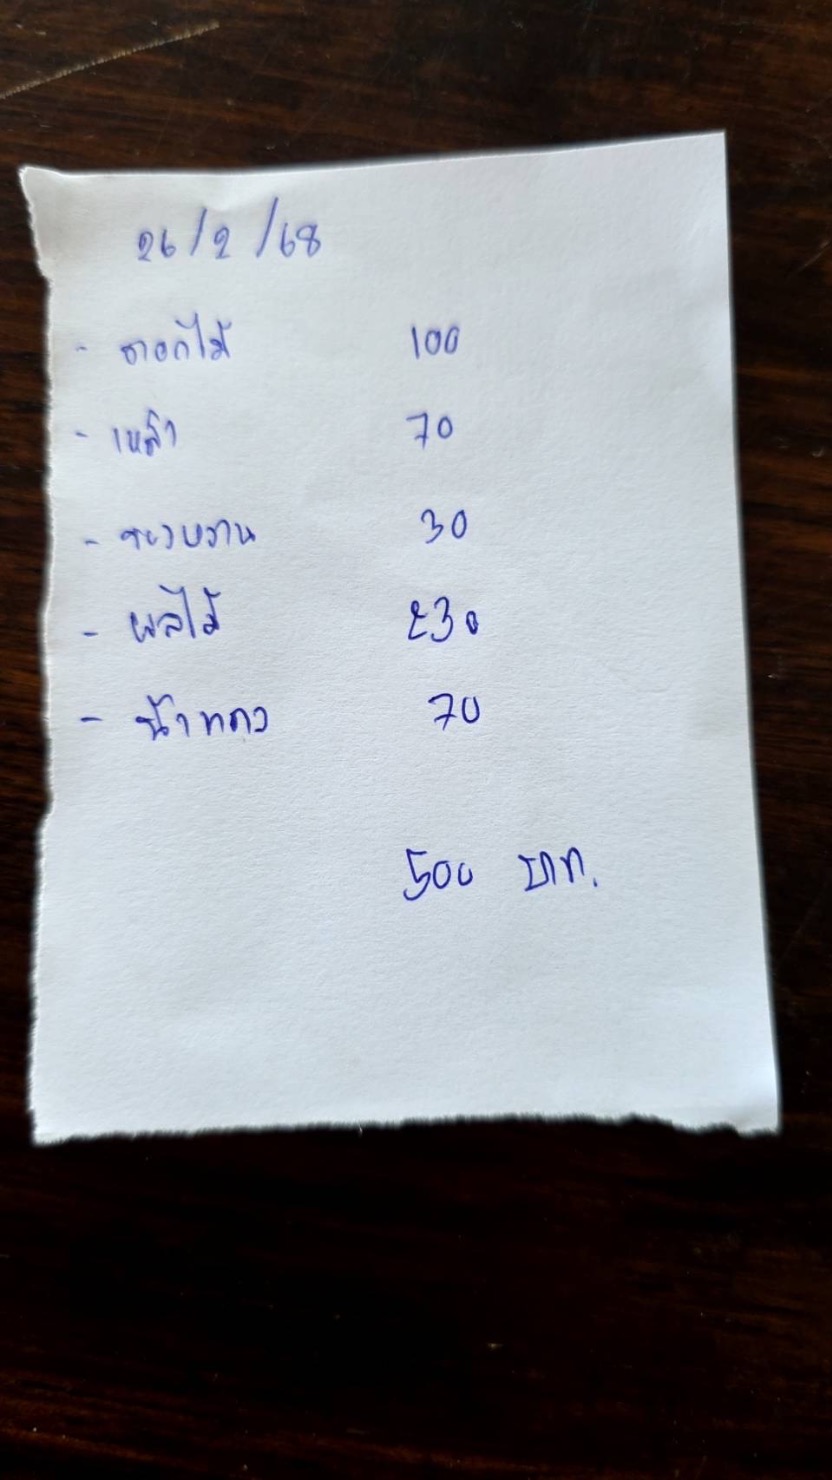 26/2/68
- ดอกไม้ 100
- เหล้า 70
- ของหวาน 30
- ผลไม้ 230
- น้ำแดง 70
500 บาท.